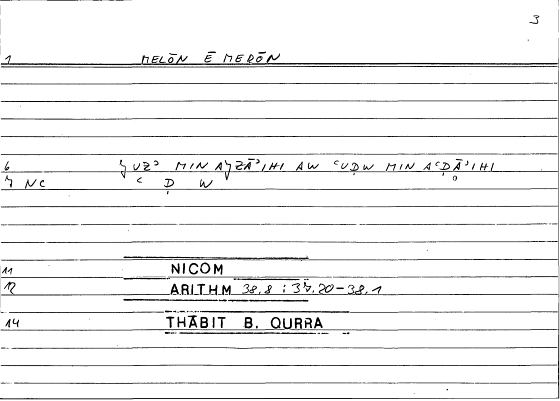 3
1 MELŌN Ē MERŌN
6 7UZʾ MIN A7ZĀʾIHI AW ʿUḌW MIN AʿḌĀʾIHI
7 NC ʿ Ḍ W
11 NICOM
12 ARITHM 38.8 : 37.20-38.1
14 THĀBIT B. QURRA